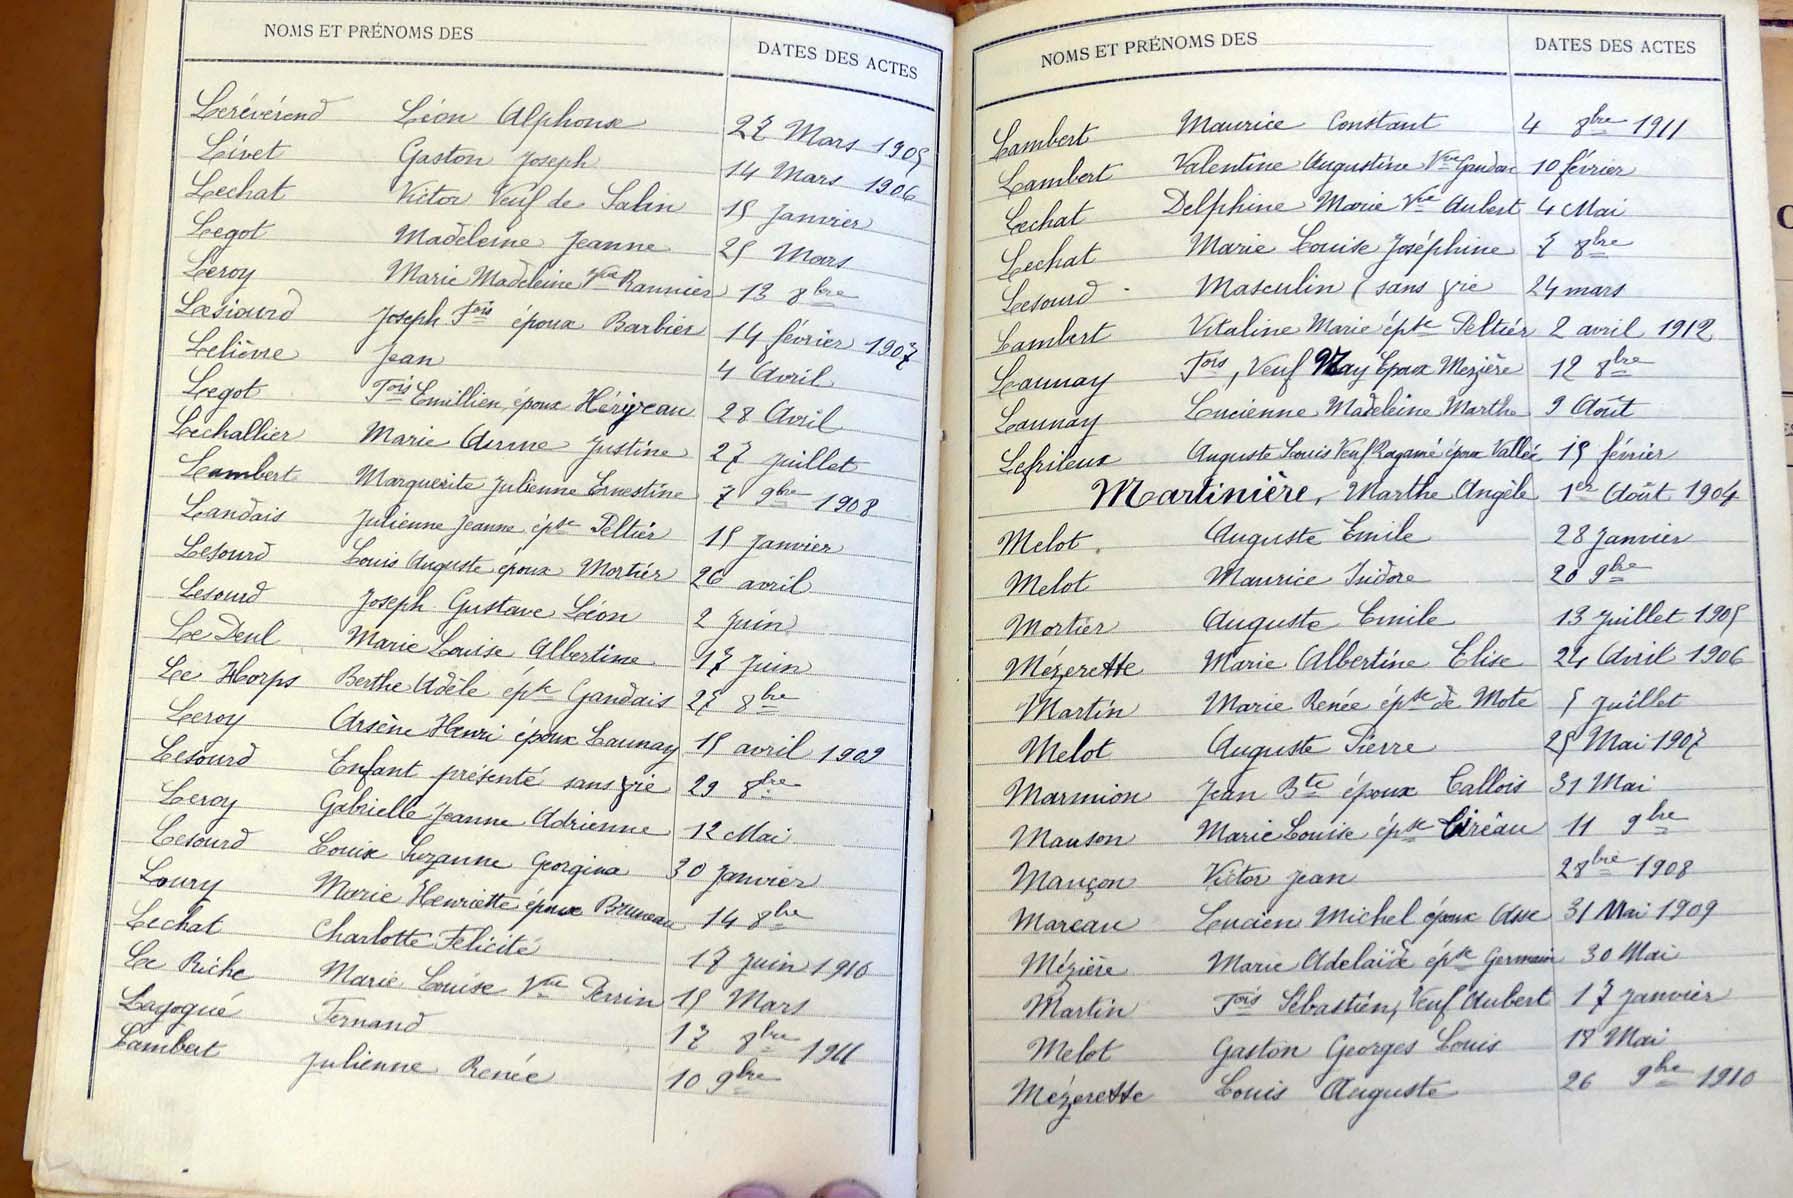 NOMS ET PRÉNOMS DES DATES DES ACTES
Lerévérend Léon Alphonse 27 Mars 1905
Livet Gaston Joseph 14 Mars 1906
Lechat Victor Veuf de Salin 15 Janvier
Legot Madeleine Jeanne 25 Mars
Leroy Marie Madeleine Vve Rannier 13 8bre
Lesiourd Joseph Fois époux Barbier 14 février 1907
Lelièvre Jean 4 Avril
Legot Fois Emillien, époux Hérizeau 28 Avril
Lechallier Marie Anne Justine 27 Juillet
Lambert Marguerite Julienne Ernestine 7 9bre 1908
Landais Julienne Jeanne épse Peltier 15 Janvier
Lesourd Louis Auguste époux Mortier 26 avril
Lesourd Joseph Gustave Léon 2 Juin
Le Deul Marie Louise Albertine 17 Juin
Le Horps Berthe Adèle épse Gandais 27 8bre
Leroy Arsène Henri époux Launay 15 avril 1909
Lesourd Enfant présenté sans vie 29 8bre
Leroy Gabrielle Jeanne Adrienne 12 Mai
Lesourd Louise Suzanne Georgina 30 Janvier
Loury Marie Henriette épouse Bruneau 14 8bre
Lechat Charlotte Félicité 17 Juin 1910
Le Riche Marie Louise Vve Perrin 15 Mars
Lagogué Fernand 17 8bre 1911
Lambert Julienne Renée 10 9bre
NOMS ET PRÉNOMS DES DATES DES ACTES
Lambert Maurice Constant 4 8bre 1911
Lambert Valentine Augustine Vve 10 février
Lechat Delphine Marie Vve Aubert 4 Mai
Lechat Marie Louise Joséphine 7 8bre
Lesourd Masculin (sans vie 24 mars
Lambert Vitaline Marie épse Peltier 2 avril 1912
Launay Fois, Veuf May Epoux Mezière 12 8bre
Launay Lucienne Madeleine Marthe 9 Août
Lefrileux Auguste Louis Veuf Ragamé époux Vallée 15 février
Martinière, Marthe Angèle 1er Août 1904
Melot Auguste Emile 28 Janvier
Melot Maurice Isidore 20 9bre
Mortier Auguste Emile 13 Juillet 1905
Mézerette Marie Albertine Elise 24 Avril 1906
Martin Marie Renée épse de Mote 5 Juillet
Melot Auguste Pierre 25 Mai 1907
Marmion Jean Bte époux Callois 31 Mai
Mauson Marie Louise épse Cireau 11 9bre
Mançon Victor Jean 28bre 1908
Mareau Lucien Michel époux Asse 31 Mai 1909
Mézière Marie Adelaïde épse Germain 30 Mai
Martin Fois Sébastien, Veuf Aubert 17 Janvier
Melot Gaston Georges Louis 18 Mai
Mézerette Louis Auguste 26 9bre 1910